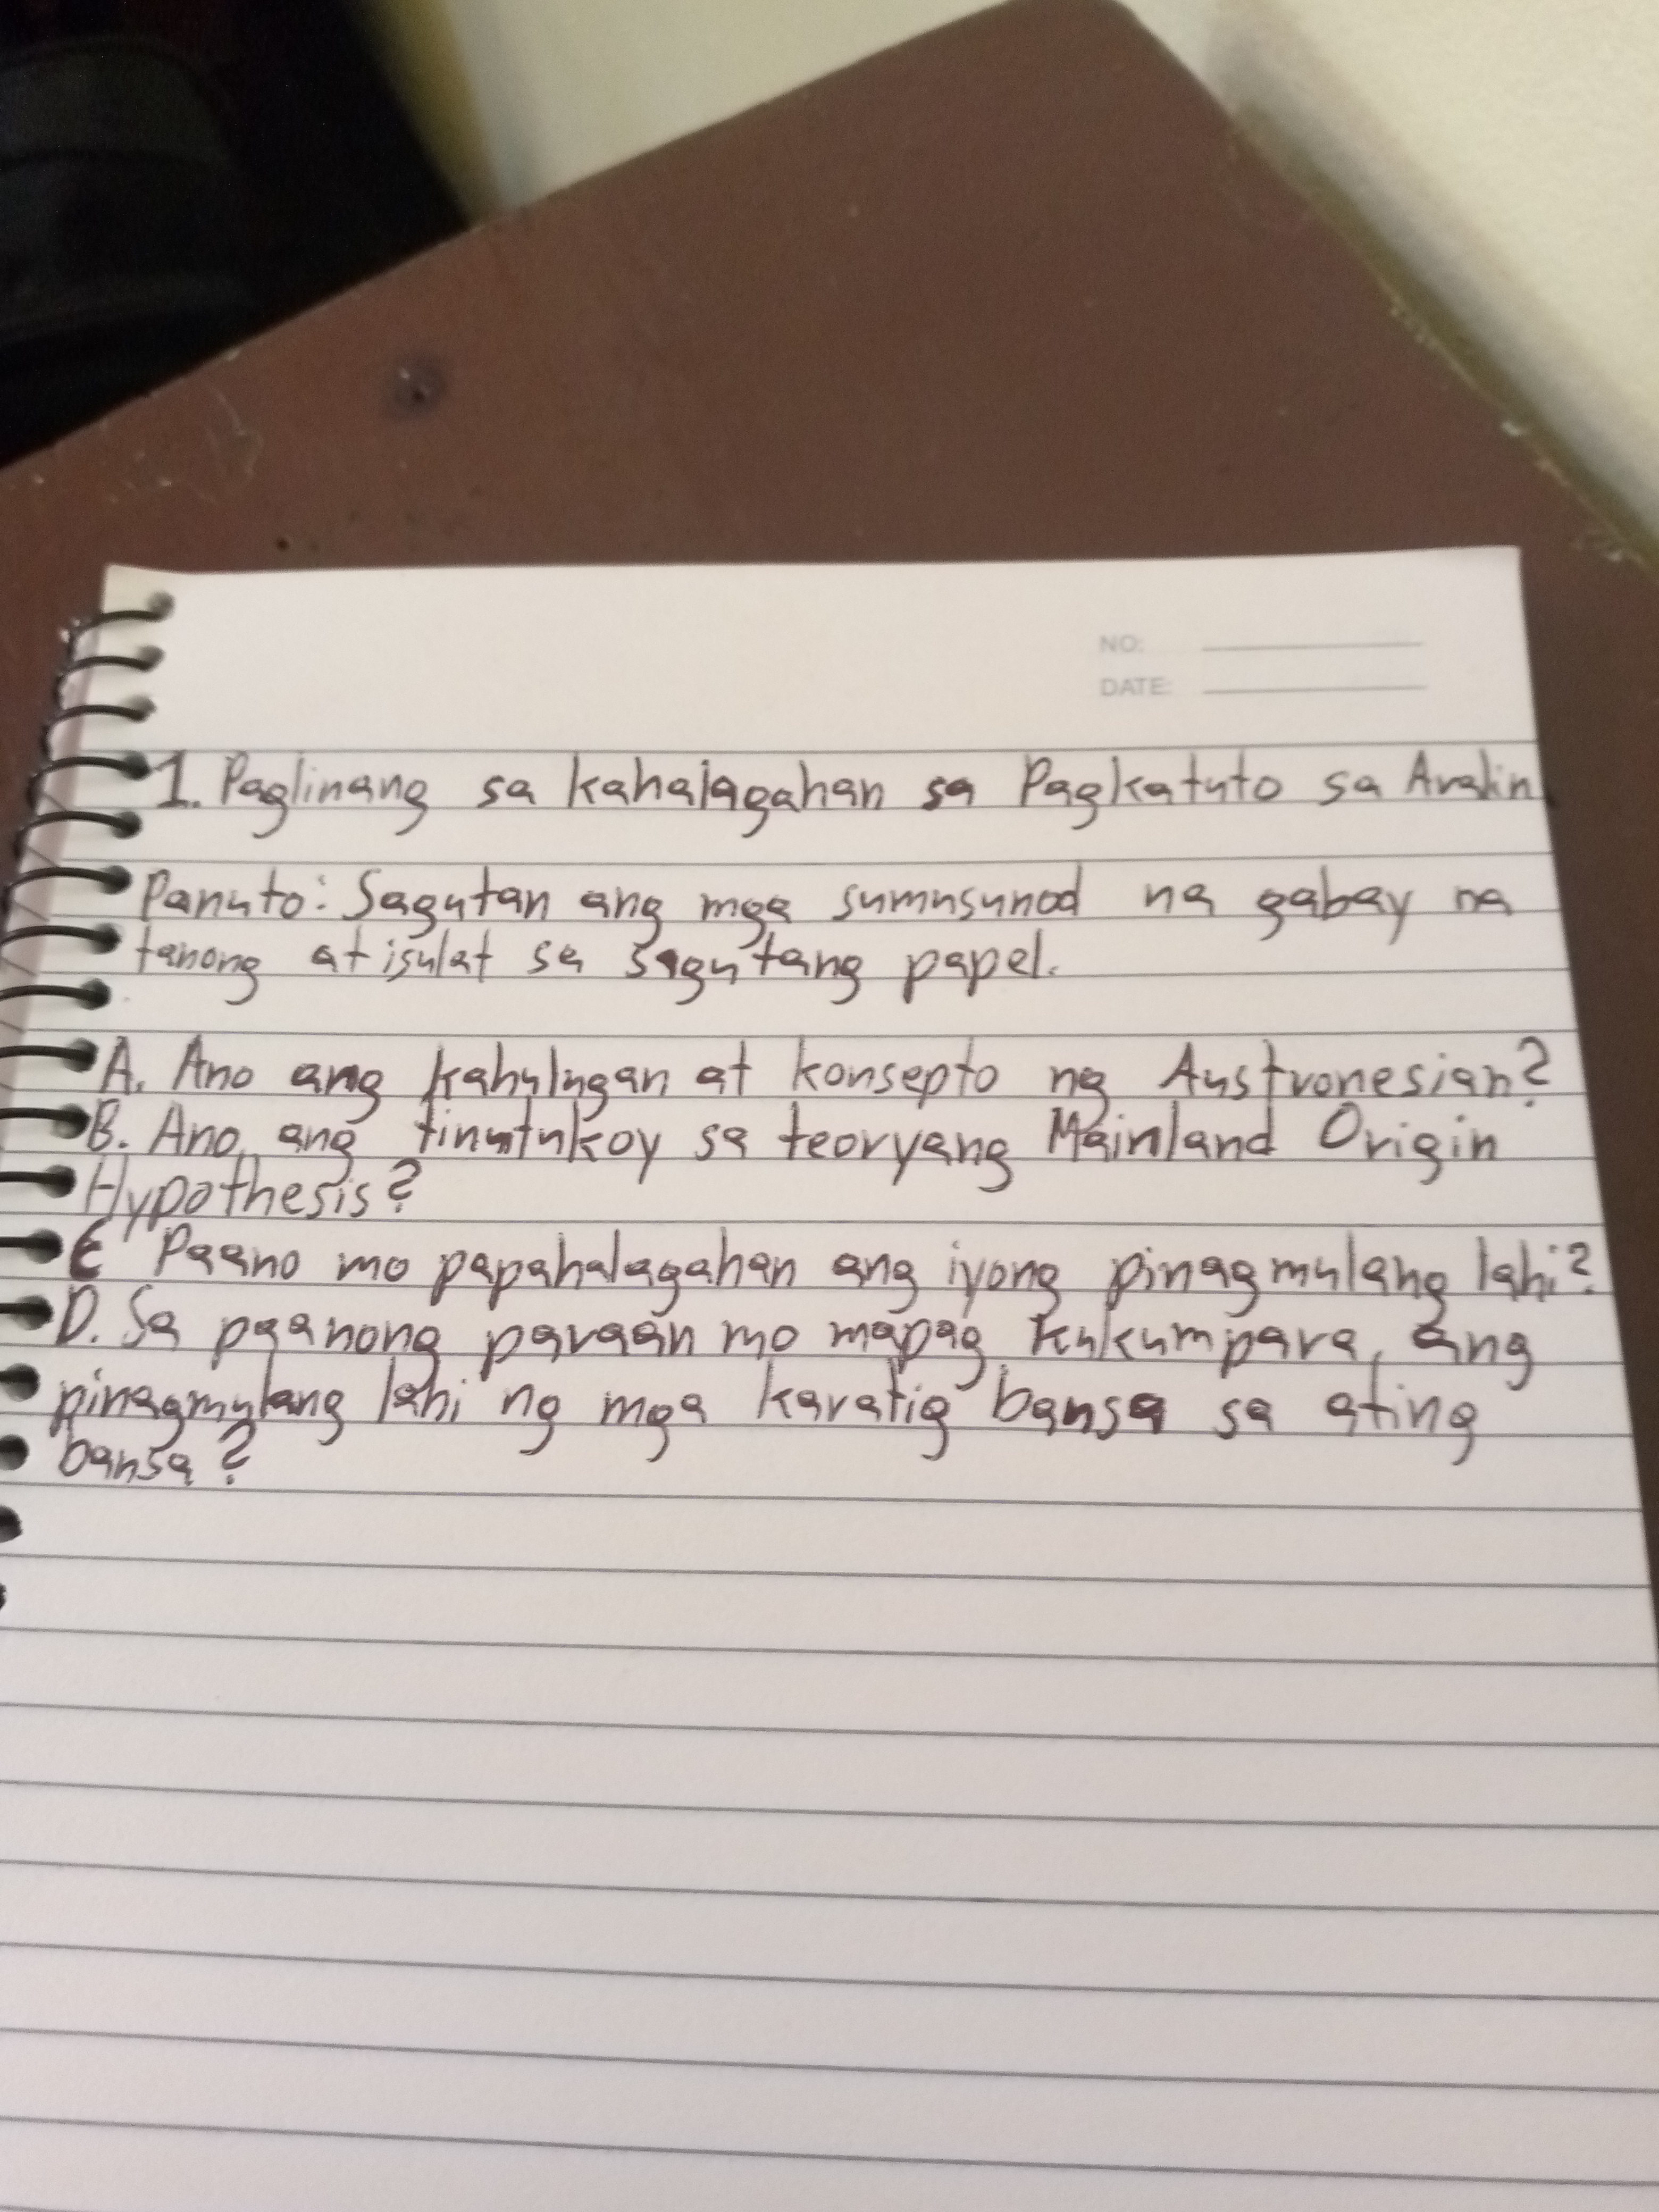 NO:
DATE:
1. Paglinang sa kahalagahan sa Pagkatuto sa Aralin
Panuto: Sagutan ang mga sumusunod na gabay na
tanong at isulat sa sagutang papel.
A. Ano ang kahulugan at konsepto ng Austronesian?
B. Ano ang tinutukoy sa teoryang Mainland Origin
Hypothesis?
C Paano mo papahalagahan ang iyong pinagmulang lahi?
D. Sa paanong paraan mo mapag kukumpara, ang
pinagmulang lahi ng mga karatig bansa sa ating
bansa?